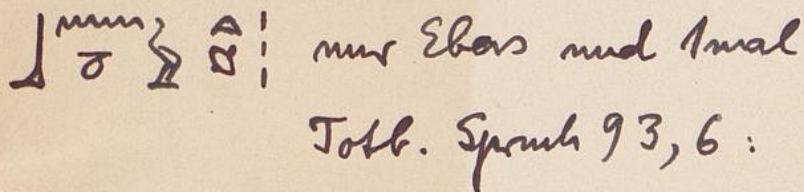 nur Ebers und 1mal
Totb. Spruch 93,6: